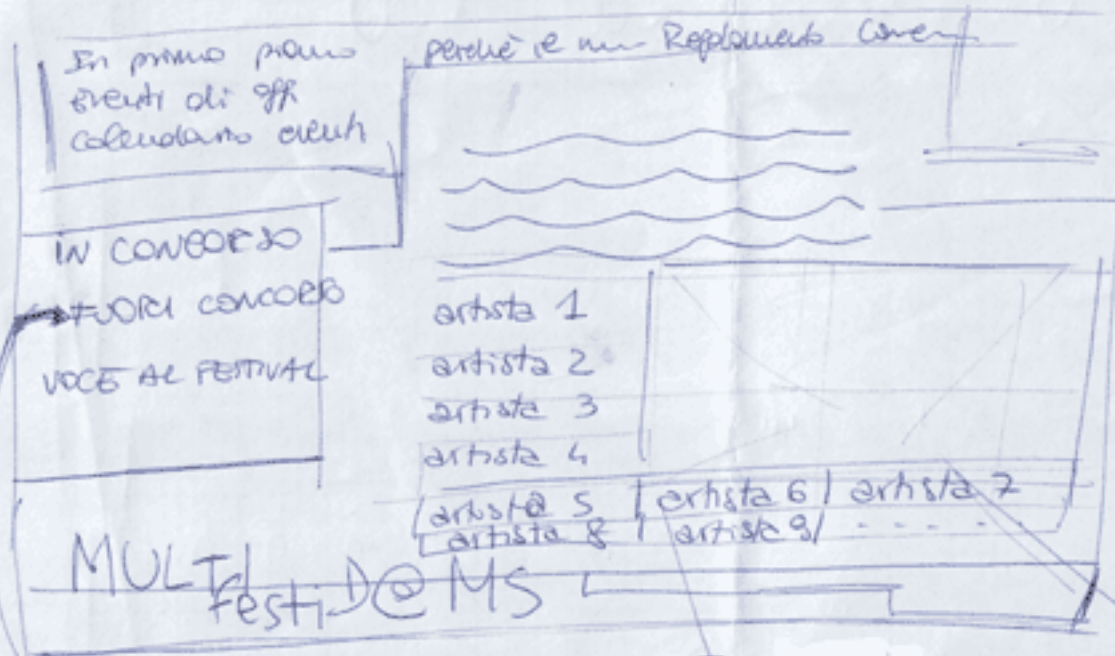 In primo piano
eventi di off
calendario eventi
perchè Regolamento
IN CONCORSO
FUORI CONCORSO
VOCE AL FESTIVAL
artista 1
artista 2
artista 3
artista 4
artista 5 artista 6 artista 7
artista 8 artista 9
MULTI
festi D@MS